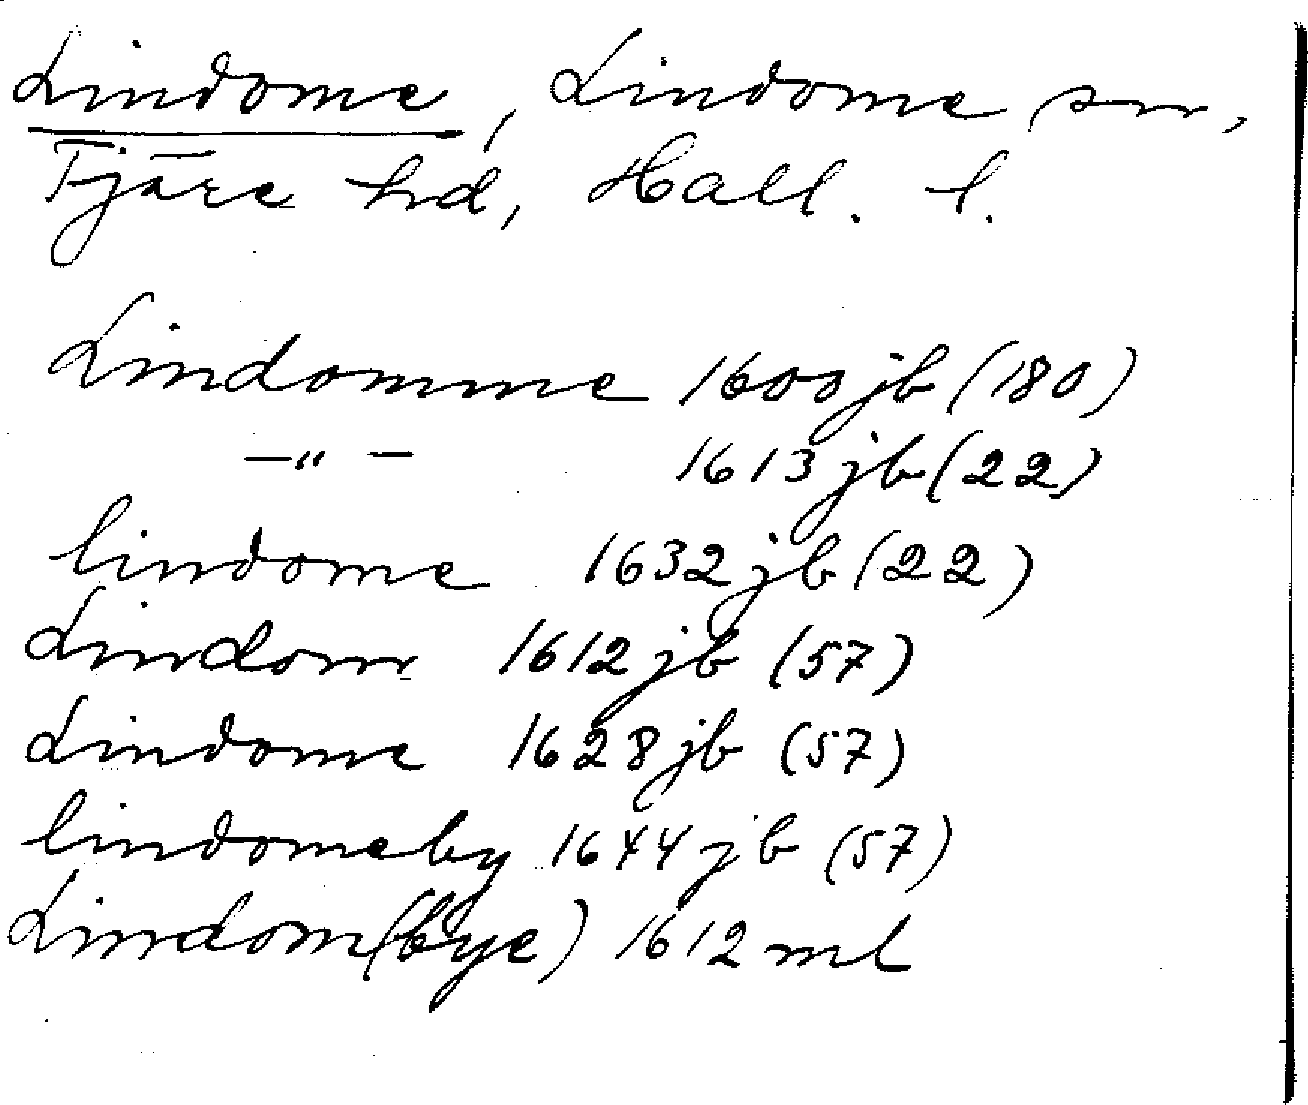 Lindome, Lindome sn,
Fjäre hd, Hall. l.
Lindomme 1600 jb (180)
—"— 1613 jb (22)
lindome 1632 jb (22)
Lindom 1612 jb (57)
Lindome 1628 jb (57)
lindomeby 1644 jb (57)
Lindom(bye) 1612 ml